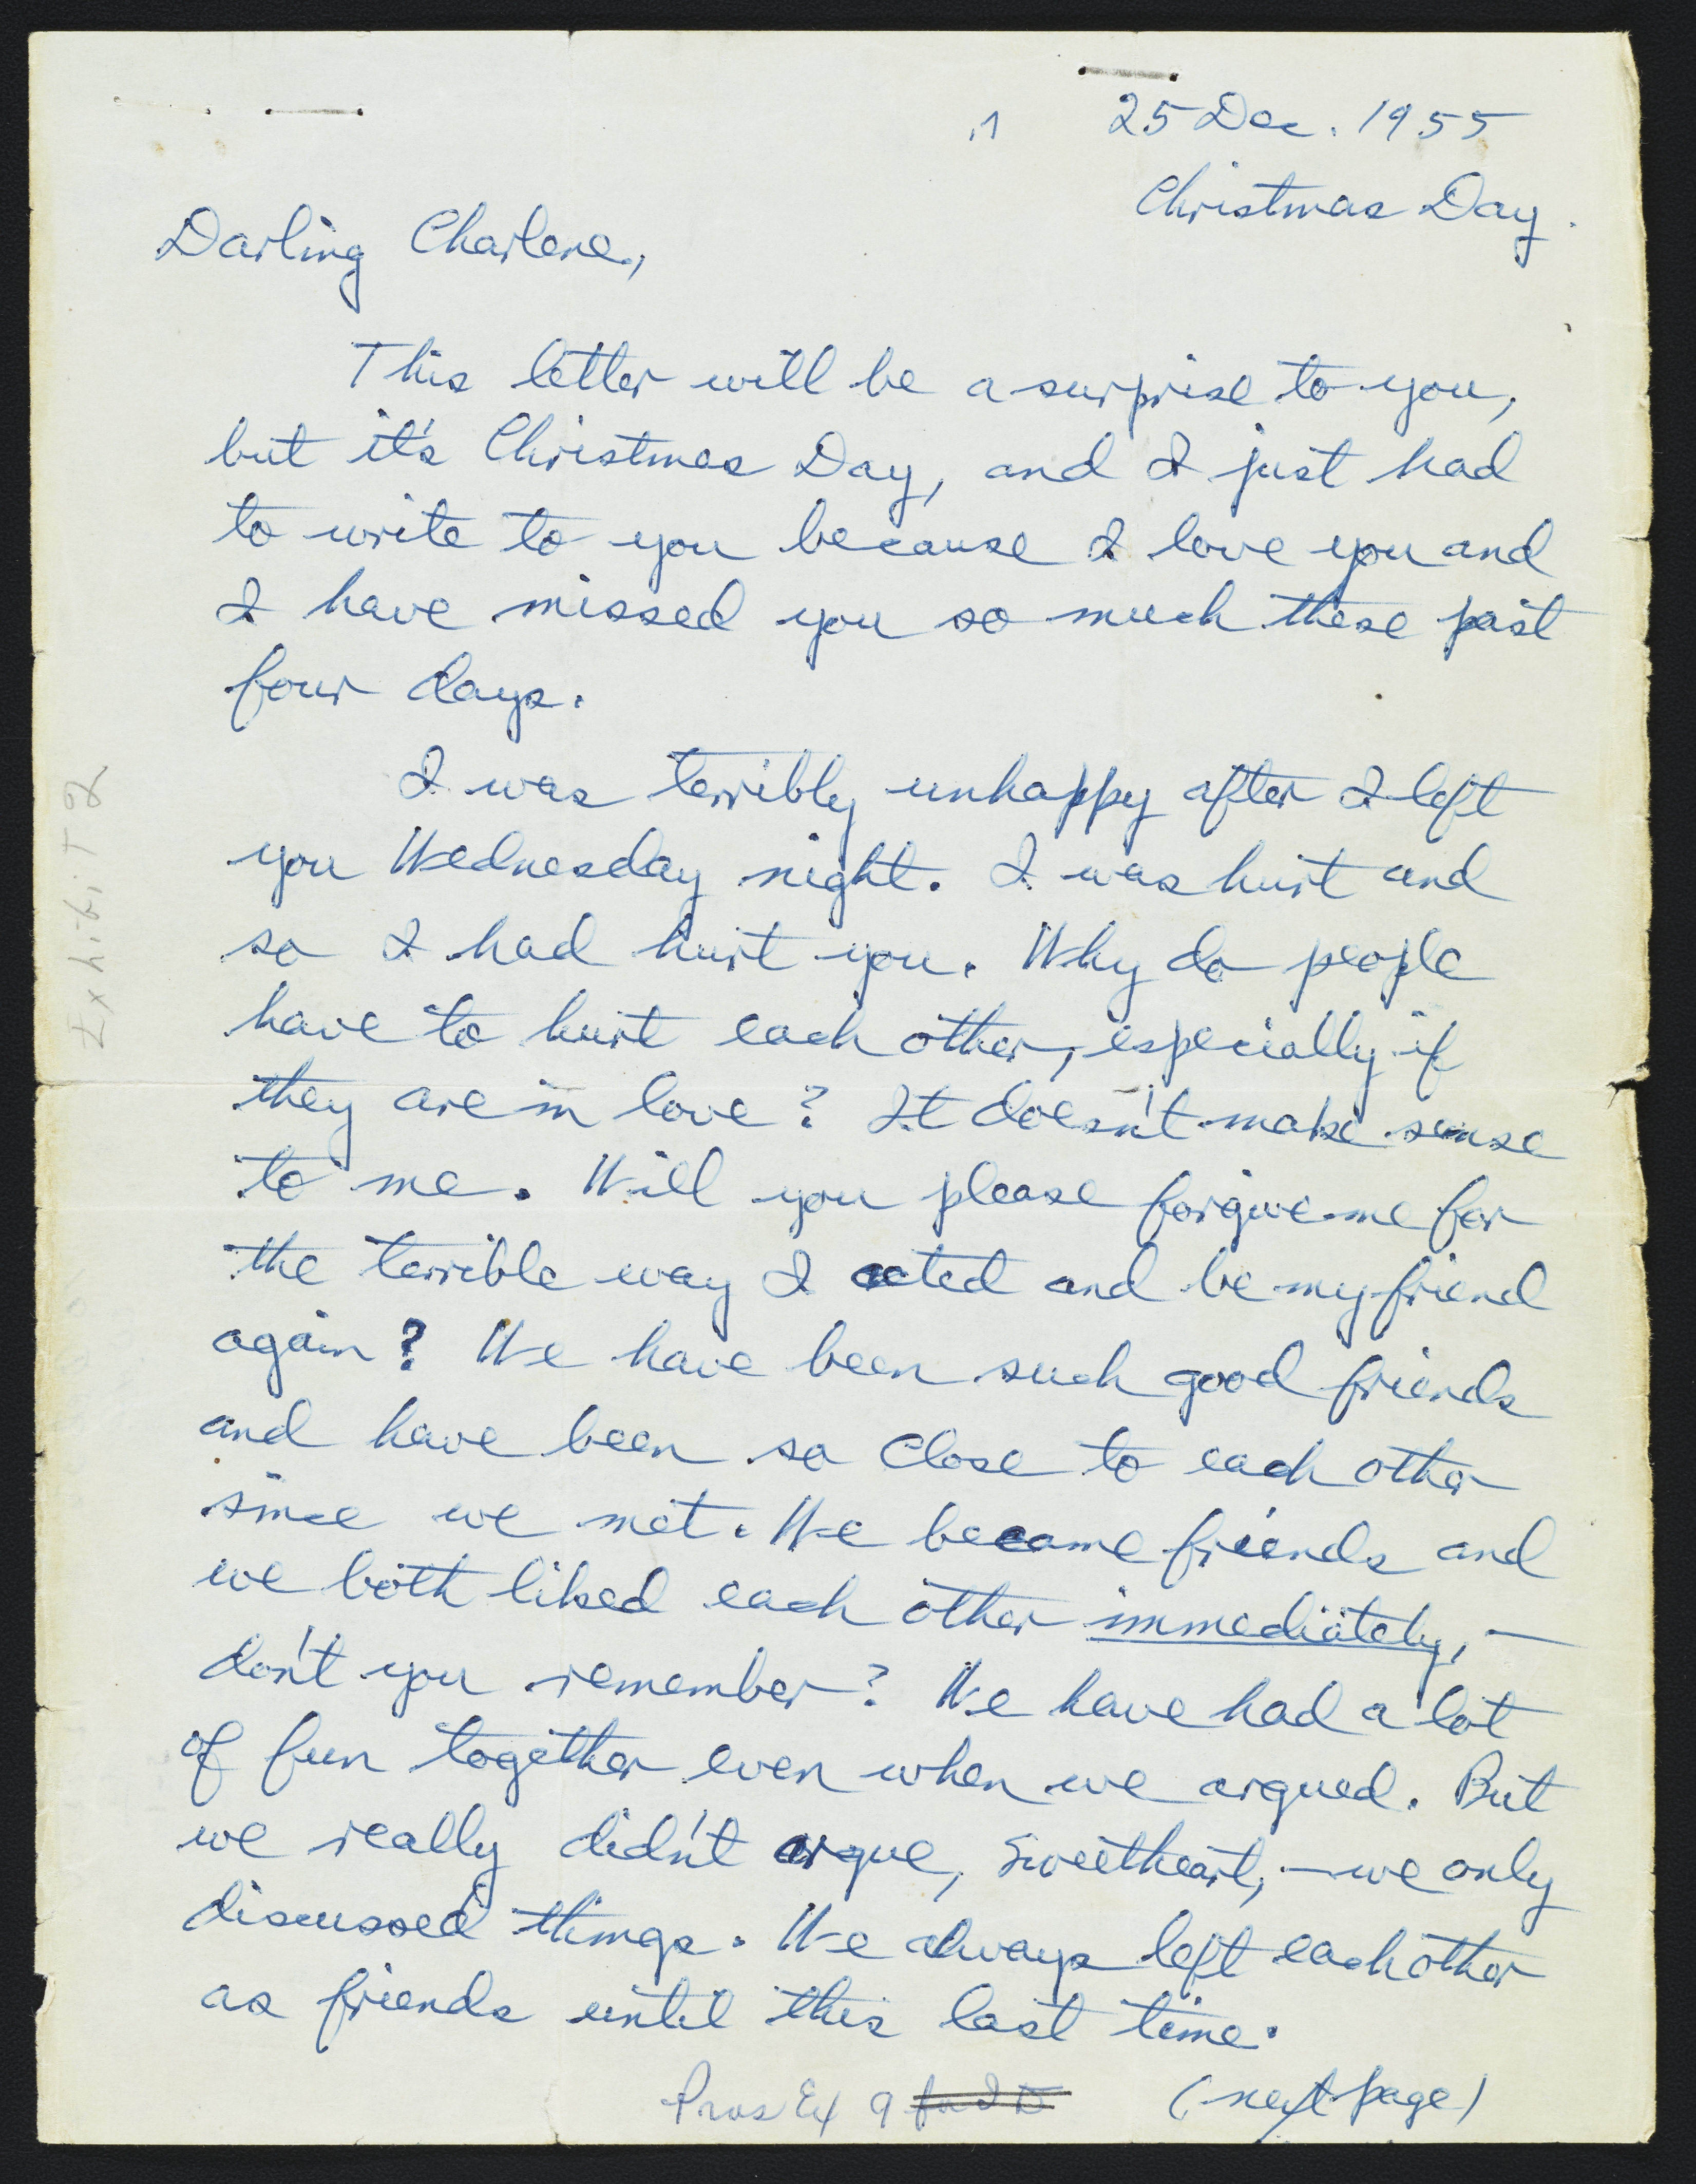 25 Dec. 1955
Christmas Day.
Darling Charlene,
This letter will be a surprise to you,
but it's Christmas Day, and I just had
to write to you because I love you and
I have missed you so much these past
four days.
I was terribly unhappy after I left
you Wednesday night. I was hurt and
so I had hurt you. Why do people
have to hurt each other, especially if
they are in love? It doesn't make sense
to me. Will you please forgive me for
the terrible way I acted and be my friend
again? We have been such good friends
and have been so close to each other
since we met. We became friends and
we both liked each other immediately, —
don't you remember? We have had a lot
of fun together even when we argued. But
we really didn't argue, sweetheart, — we only
discussed things. We always left each other
as friends until this last time.
(next page)
Pros Ex 9 for ID
Exhibit 2